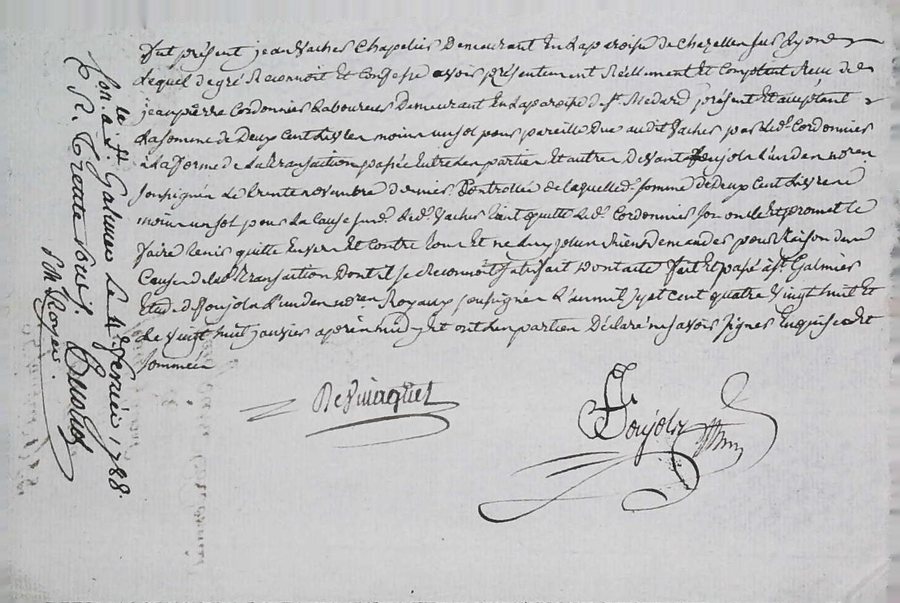 Fut présent jean Vacher Chapelier Demeurant En La paroisse de Chazelles sur Lyon
Lequel de gré Reconnoit Et Confesse avoir présentement Réellement Et Comptant Receu de
jean pierre Cordonnier Laboureur Demeurant En La paroisse de St. Medard présent Et acceptant
La somme de Deux Cent Livres moins un sol pour pareille Due audit Vacher par Led. Cordonnier
à La forme de La transaction passée Entre Les parties Et autres Devant Poujola L'un des nores
soussignés Le trente novembre dernier Controllée de laquelle d. somme de Deux Cent Livres
moins un sol pour La Cause susd. Led. Vacher tient quitte Led. Cordonnier Et promet Le
faire tenir quitte Envers Et Contre tous Et ne Luy plus Rien Demander pour Raison du
Causes de lad. transaction Dont il se Reconnoit satisfait Dont acte fait Et passé à St. Galmier
Etude de Poujola L'un des nores Royaux soussignés L'an mil sept cent quatre Vingt huit Et
Le Vingt huit janvier après midy Et ont Les parties Déclaré ne savoir signer Enquises Et
sommées
Poujola
Con. le à St. Galmier Le 4 fevrier 1788.
R. trente sous.